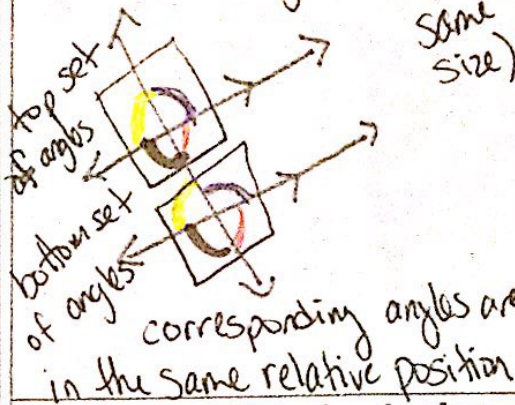 same
size)
top set
of angles
bottom set
of angles
corresponding angles are
in the same relative position